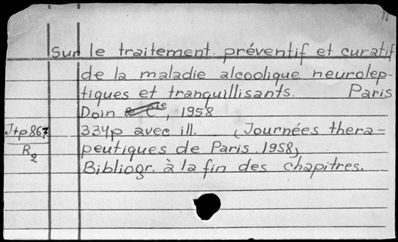 Sur le traitement préventif et curatif
de la maladie alcoolique neurolep-
tiques et tranquillisants. Paris
Doin & Cie, 1958
Jtp867
R2
334p avec ill. (Journées thera=
peutiques de Paris 1958)
Bibliogr. à la fin des chapitres.